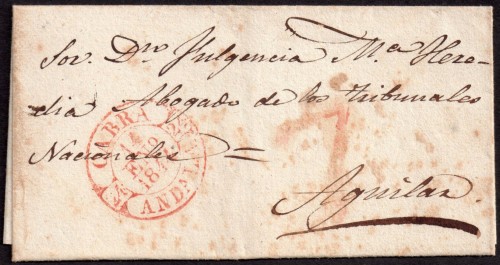 Sor. Dn. Fulgencio Ma. Here-
dia Abogado de los tribunales
Nacionales =
Aguilar
CABRA
14
AND.
7